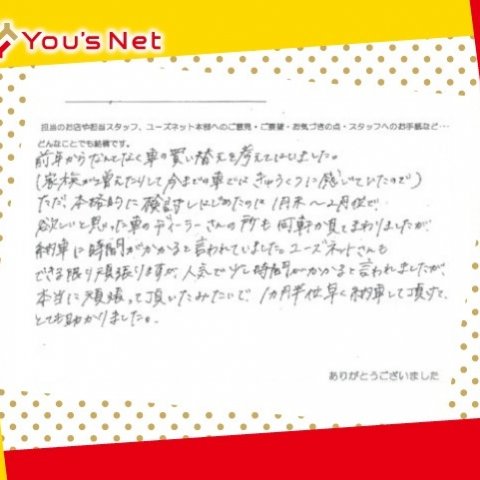 You's Net
担当のお店や担当スタッフ、ユーズネット本部へのご意見・ご要望・お気づきの点・スタッフへのお手紙など…
どんなことでも結構です。
前年からなんとなく車の買い替えを考えてはいました。
(家族が増えたりして今までの車ではきゅうくつに感じていたので)
ただ、本格的に検討しはじめたのは1月末〜2月位で、
欲しいと思った車のディーラーさんの所も何軒か見てまわりましたが、
納車に時間がかかると言われていました。ユーズネットさんも
できる限り頑張りますが、人気で少し時間がかかると言われましたが、
本当に頑張って頂いたみたいで、1カ月半位早く納車して頂けて、
とても助かりました。
ありがとうございました